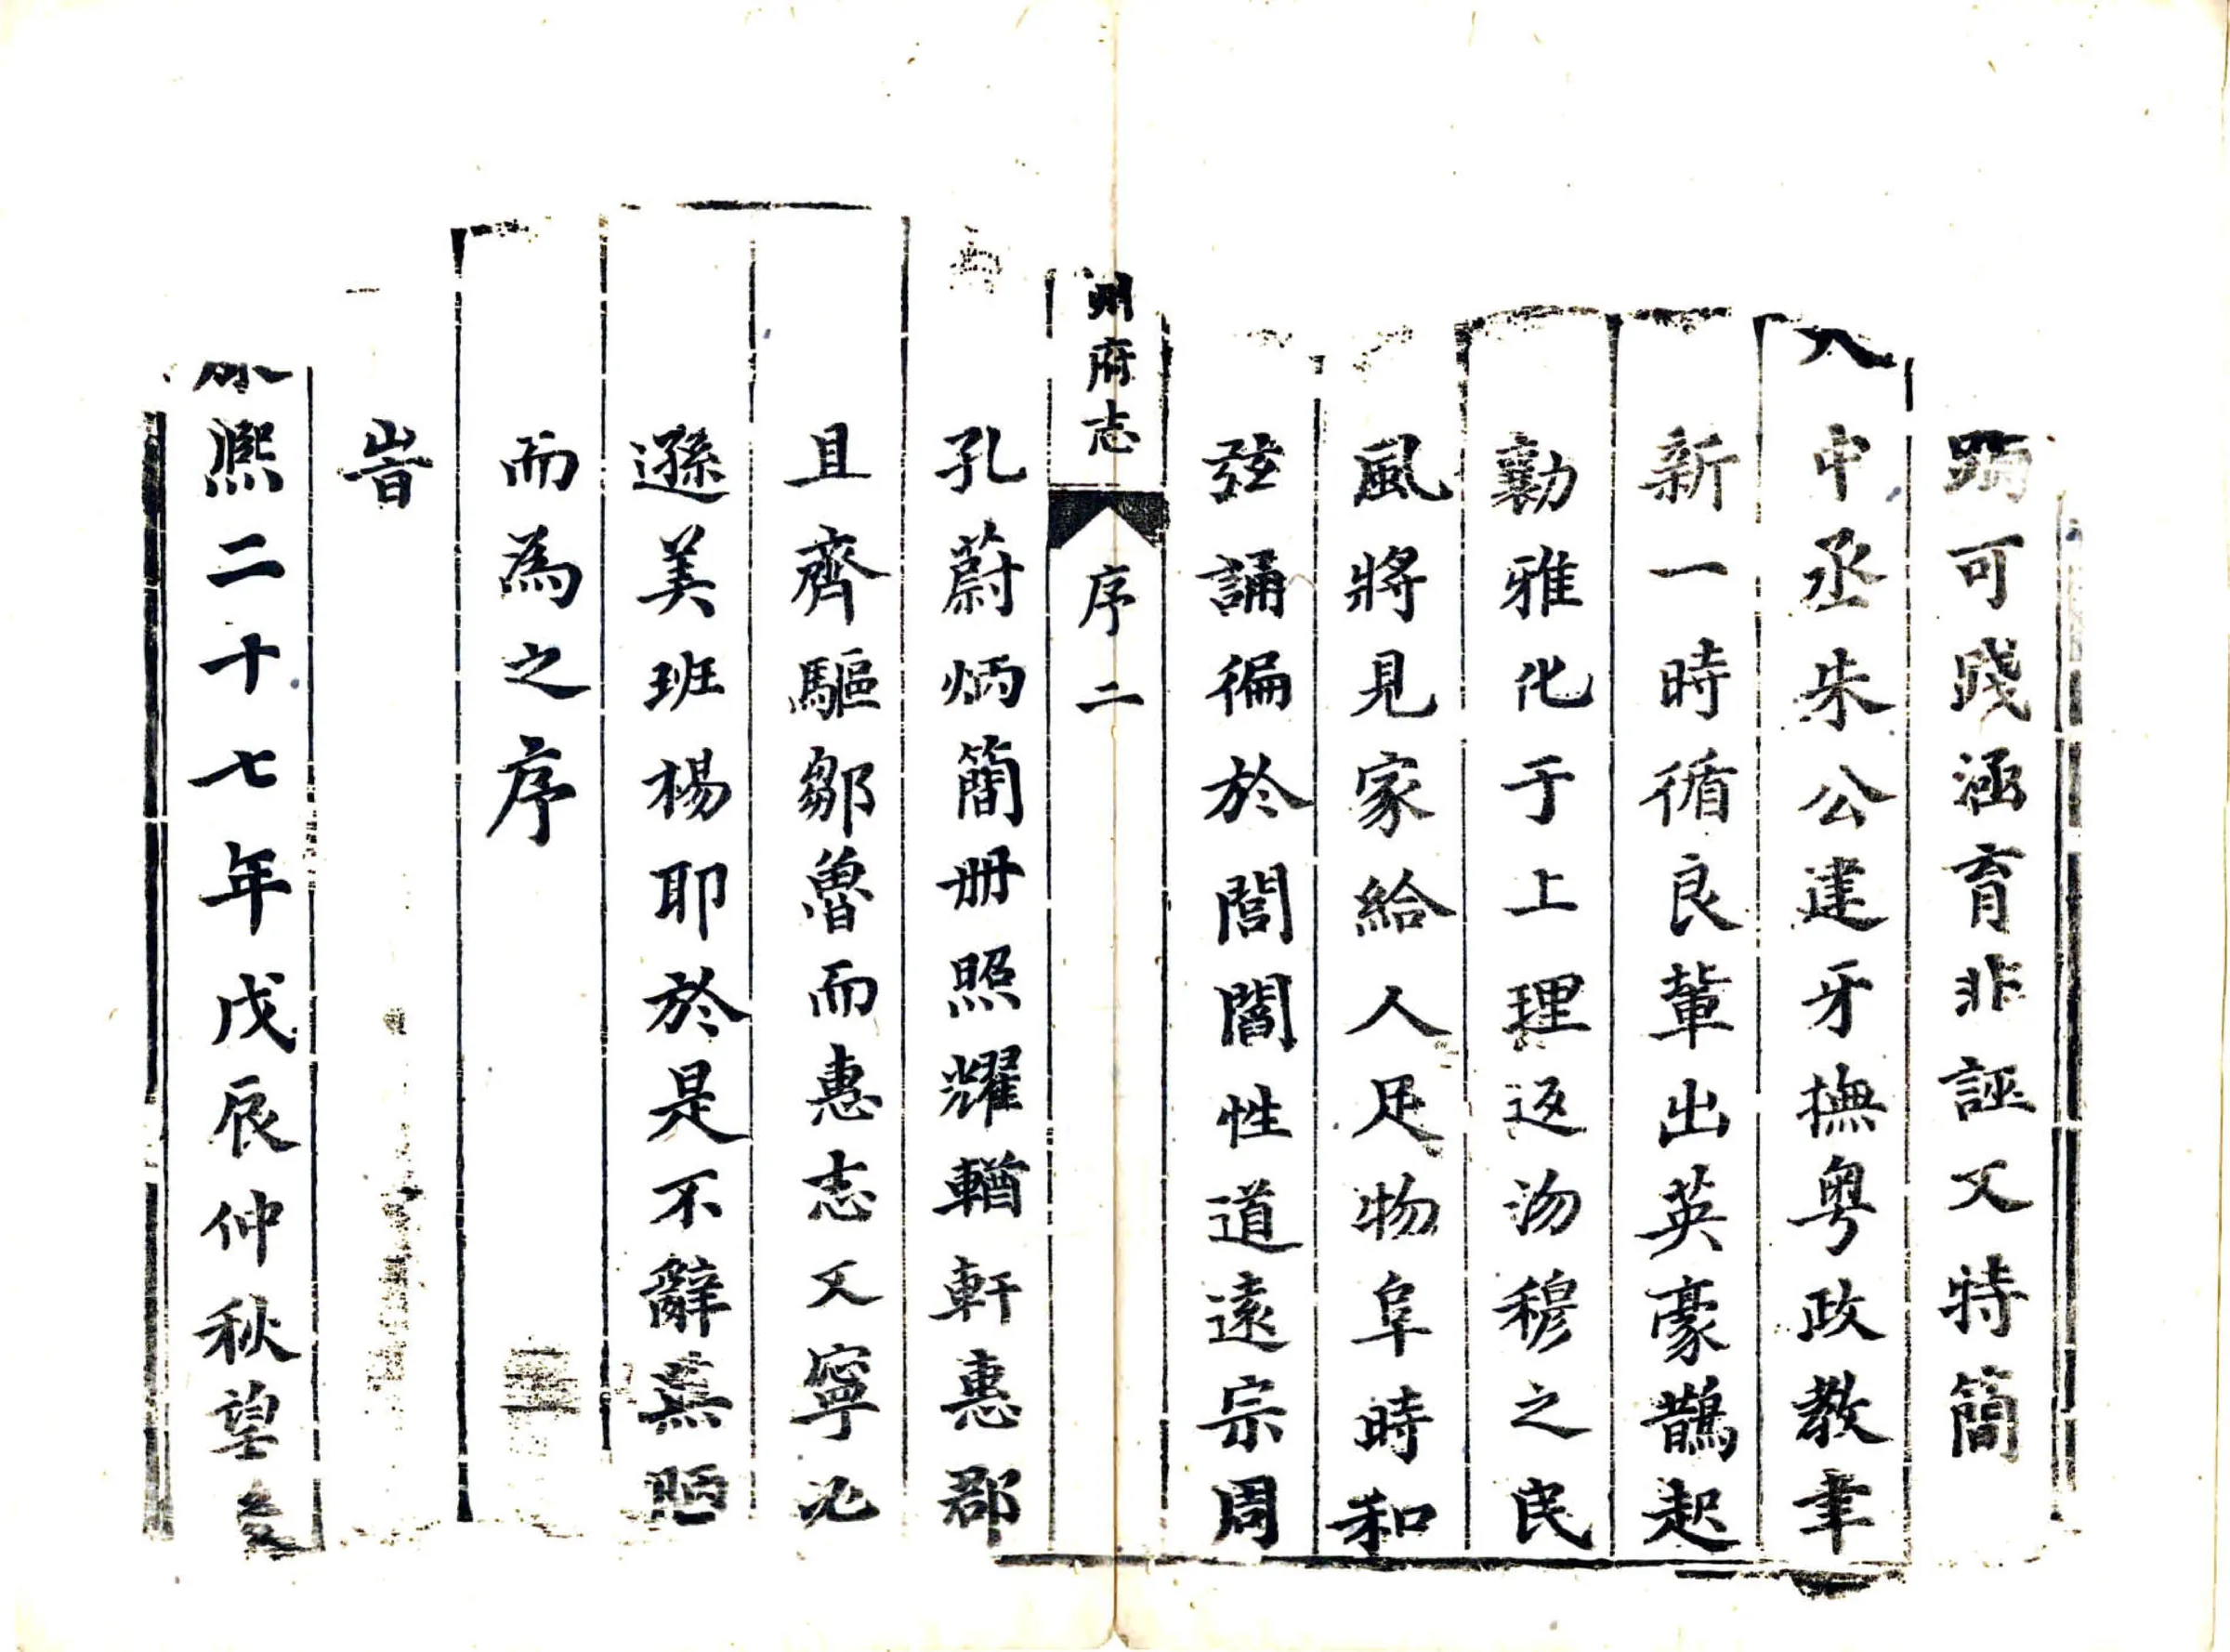 可踐涵育非誣又特簡
大中丞朱公建牙撫粵政教聿
新一時循良輩出英豪鵲起
勷雅化于上理返沕穆之民
風將見家給人足物阜時和
弦誦徧於閭閻性道遠宗周
州府志
序二
孔蔚炳簡冊照耀輶軒惠郡
且齊驅鄒魯而惠志又寧必
遜美班楊耶於是不辭蕪陋
而為之序
旹
康熙二十七年戊辰仲秋望